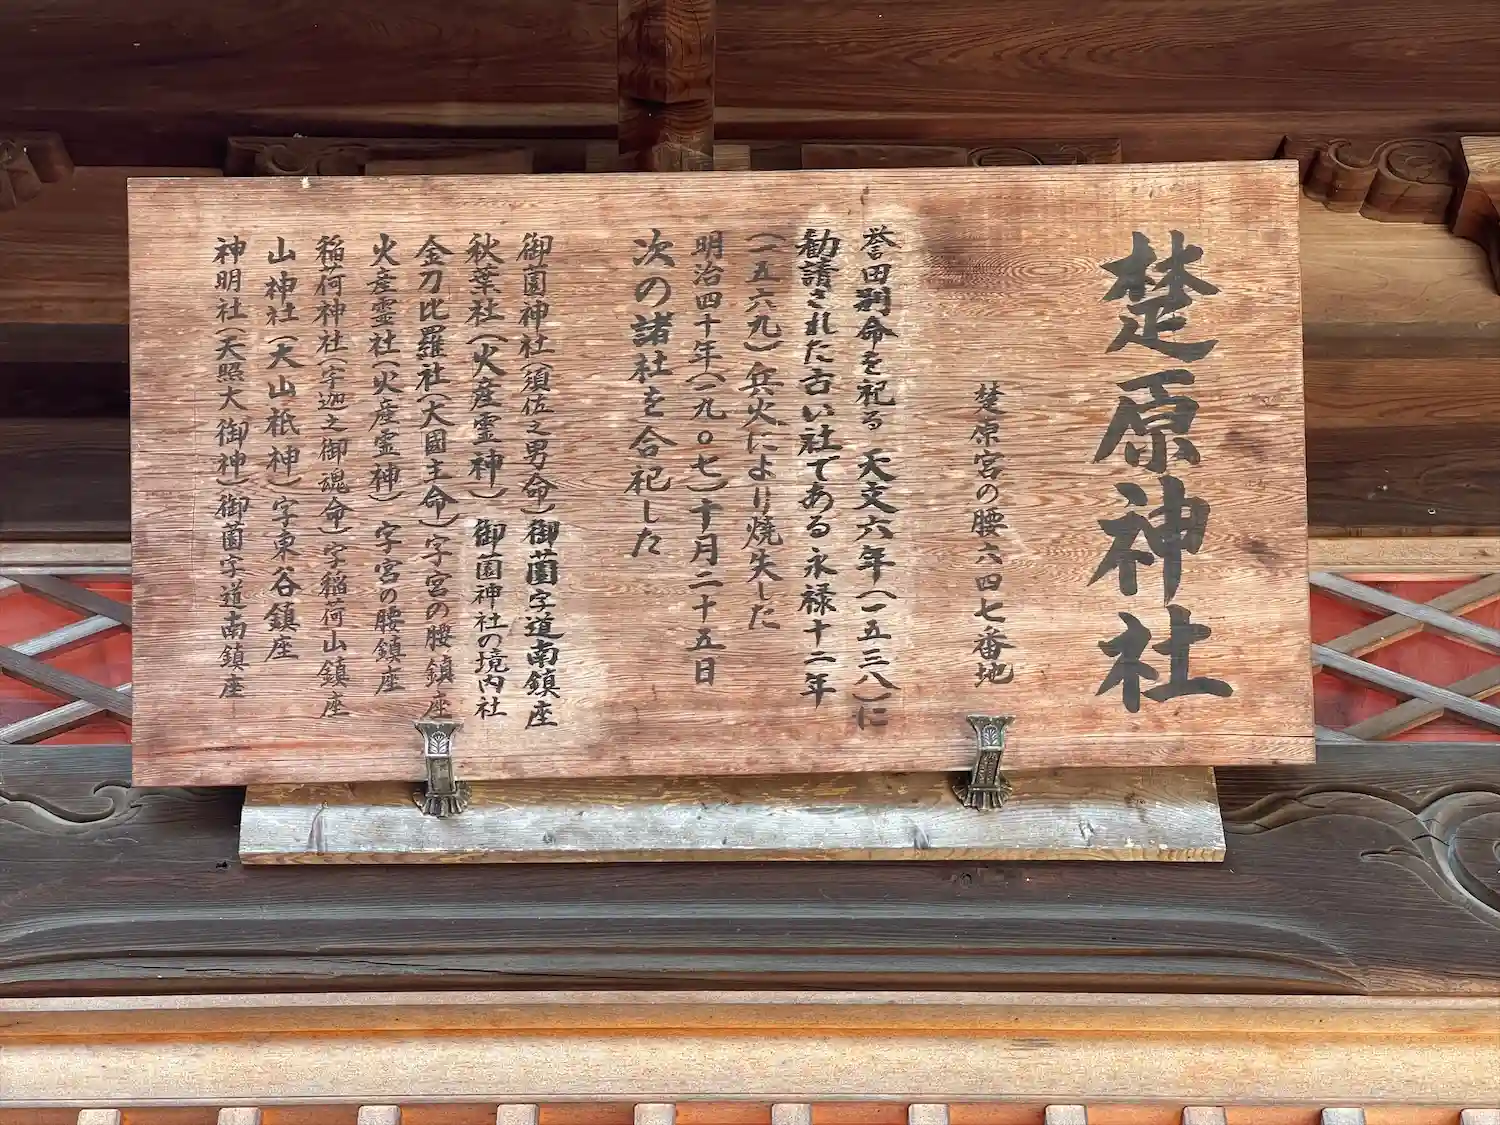 楚原神社
楚原宮の腰六四七番地
誉田別命を祀る 天文六年(一五三八)に
勧請された古い社である 永禄十二年
(一五六九)兵火により焼失した
明治四十年(一九〇七)十月二十五日
次の諸社を合祀した
御薗神社(須佐之男命)御薗字道南鎮座
秋葉社(火産霊神) 御薗神社の境内社
金刀比羅社(大國主命)字宮の腰鎮座
火産霊社(火産霊神) 字宮の腰鎮座
稲荷神社(宇迦之御魂命)字稲荷山鎮座
山神社(大山祇神)字東谷鎮座
神明社(天照大御神)御薗字道南鎮座